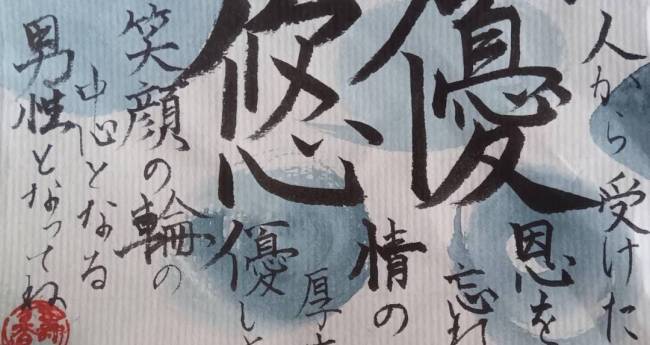 優
悠
人から受けた
恩を
忘れ
情の
厚
優し
笑顔の輪の
中心となる
男性となってね